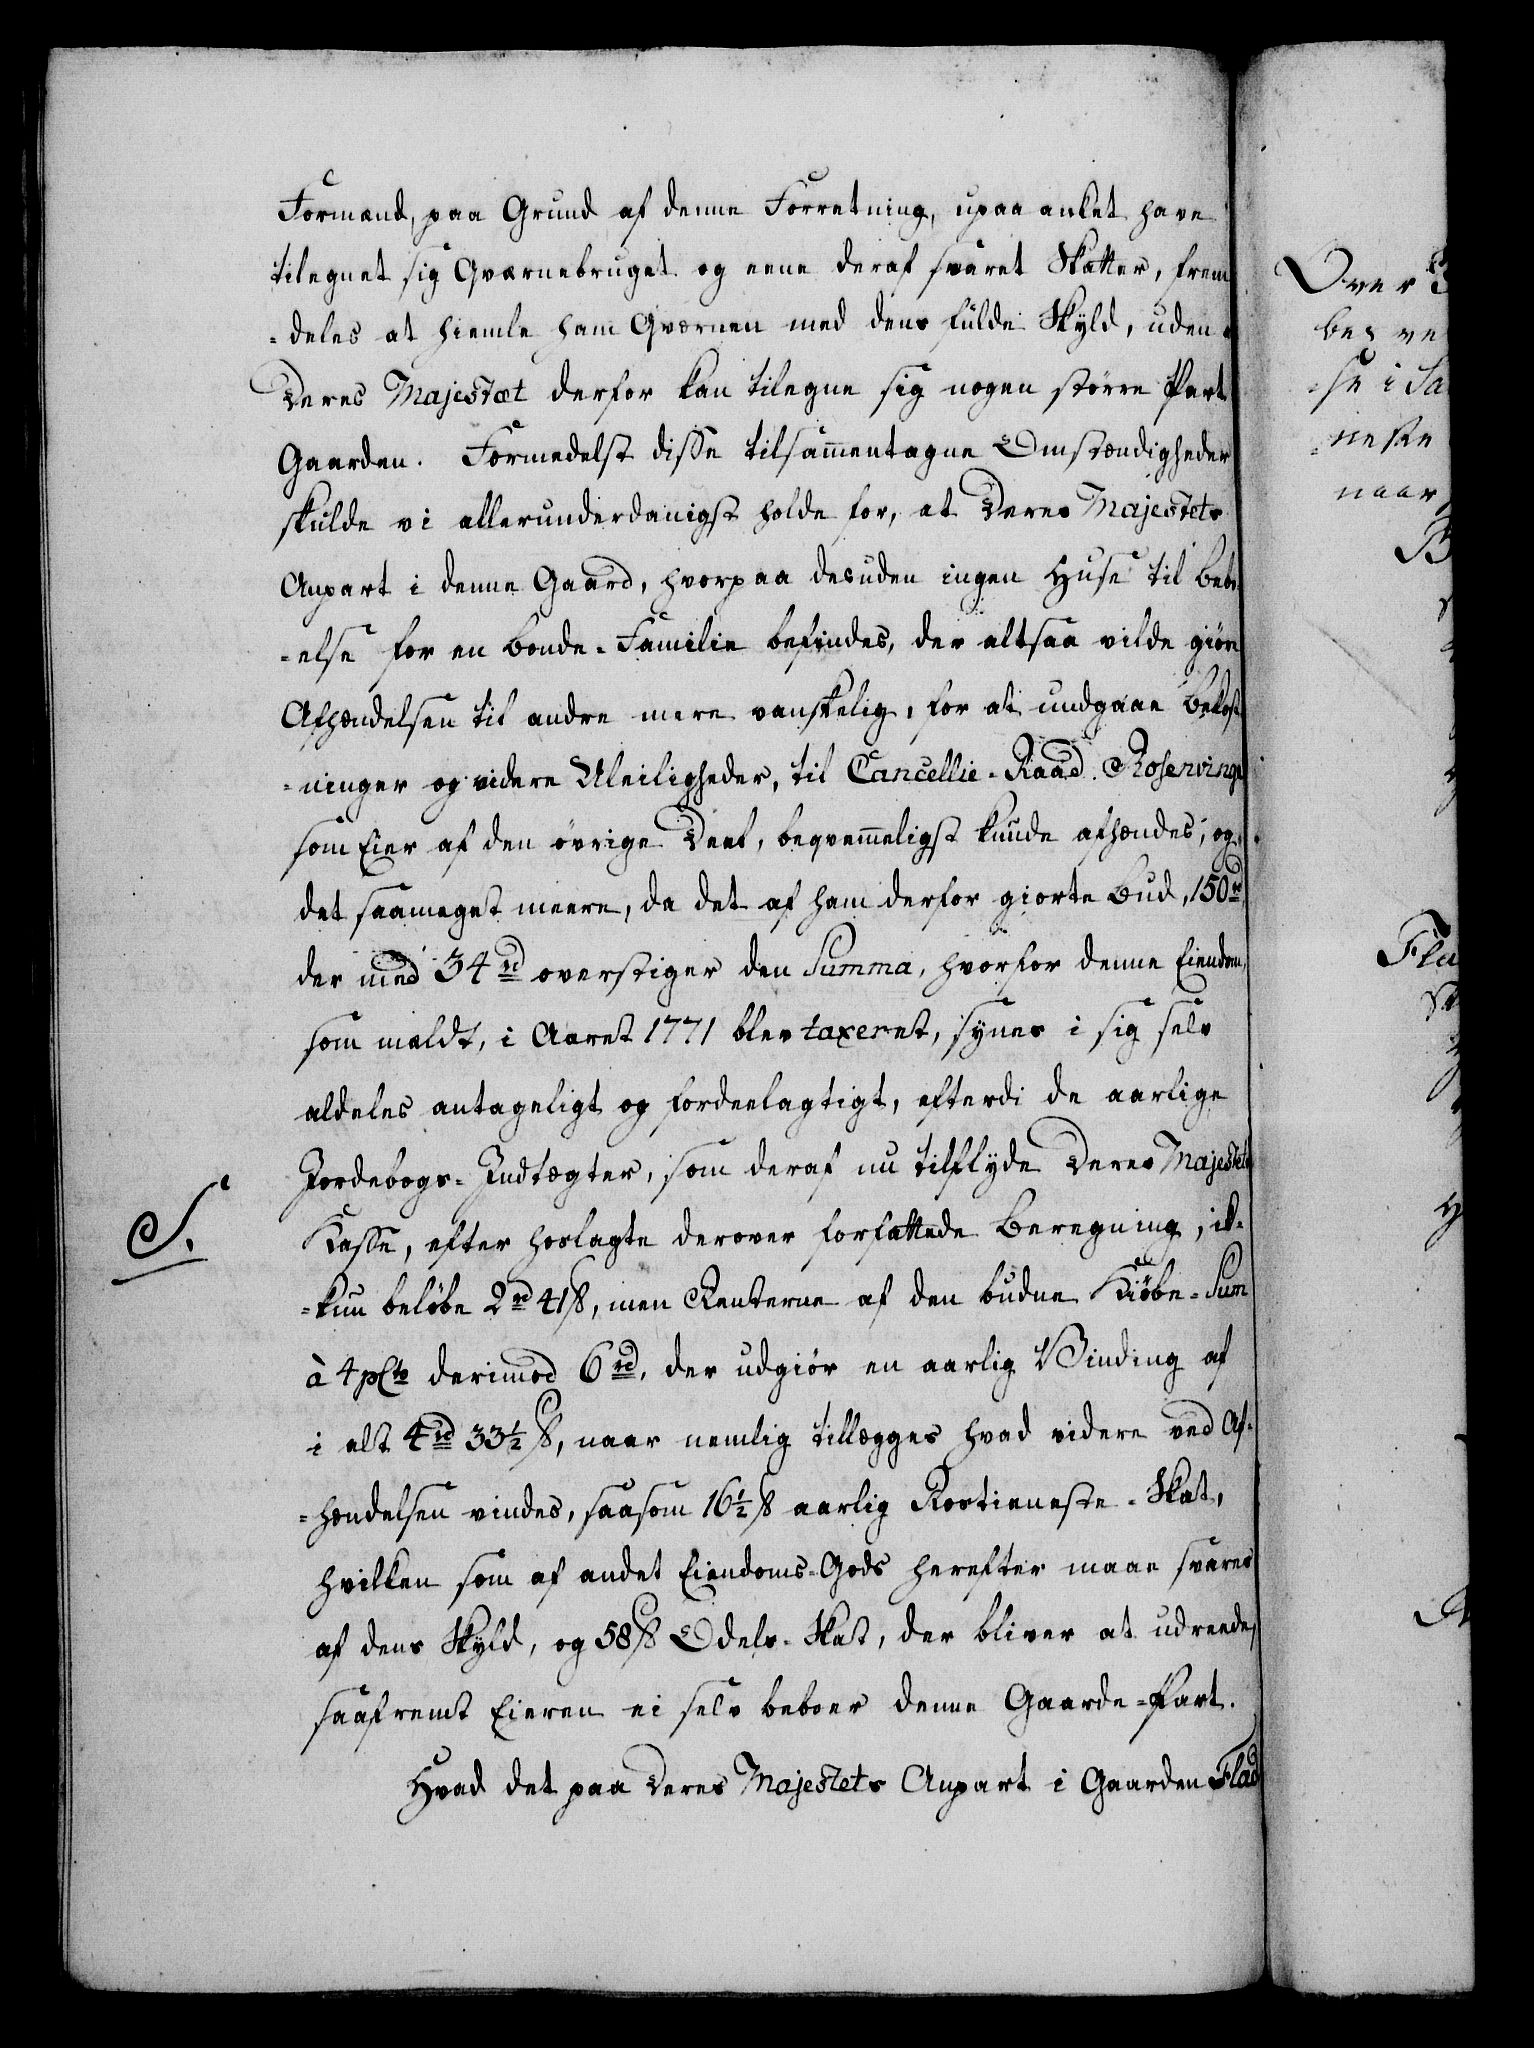 Formænd, paa Grund af denne Forretning, upaa anket have
tilegnet sig Qværnebruget og eene deraf svaret Skatter, frem
-deles at hiemle ham Qværnen med dens fulde Skyld, uden
Deres Majestæt derfor kan tilegne sig nogen større Part
Gaarden. Formedelst disse tilsam̄entagne Omstændigheder
skulde vi allerunderdanigst holde for, at Deres Majestets
Anpart i denne Gaard, hvorpaa desuden ingen Huse til Bebo
-else for en Bonde-Familie befindes, der altsaa vilde giøre
Afhændelsen til andre mere vanskelig, for at undgaae Bekost
-ninger og videre Uleiligheder, til Cancellie-Raad Rosenvinge
som Eier af den øvrige Deel, beqvem̄eligst kunde afhændes, og
det saameget meere, da det af ham derfor giorte Bud, 150 rd
der med 34 rd overstiger den Summa, hvorfor denne Eiendom,
som meldt, i Aaret 1771 blev taxeret, synes i sig selv
aldeles antageligt og fordeelagtigt, efterdi de aarlige
Jordebogs-Indtægter, som deraf nu tilflyde Deres Majestets
S. Kasse, efter hoslagte derover forfattede Beregning, ik-
-kun beløbe 2 rd 41 ß, men Renterne af den budne Kiøbe-Sum
à 4 pCto derimod 6 rd, der udgiør en aarlig Vinding af
i alt 4 rd 33½ ß, naar nemlig tillægges hvad videre ved Af-
-hændelsen vindes, saasom 16½ ß aarlig Rostieneste-Skat,
hvilken som af andet Eiendoms-Gods herefter maae svares
af dens Skyld, og 58 ß Odels-Skat, der bliver at udreede,
saafremt Eieren ei selv beboer denne Gaarde-Part.
Hvad det paa Deres Majestets Anpart i Gaarden Flad
Over
bes ve
-se i Sa
-neste
naar
B
Fla